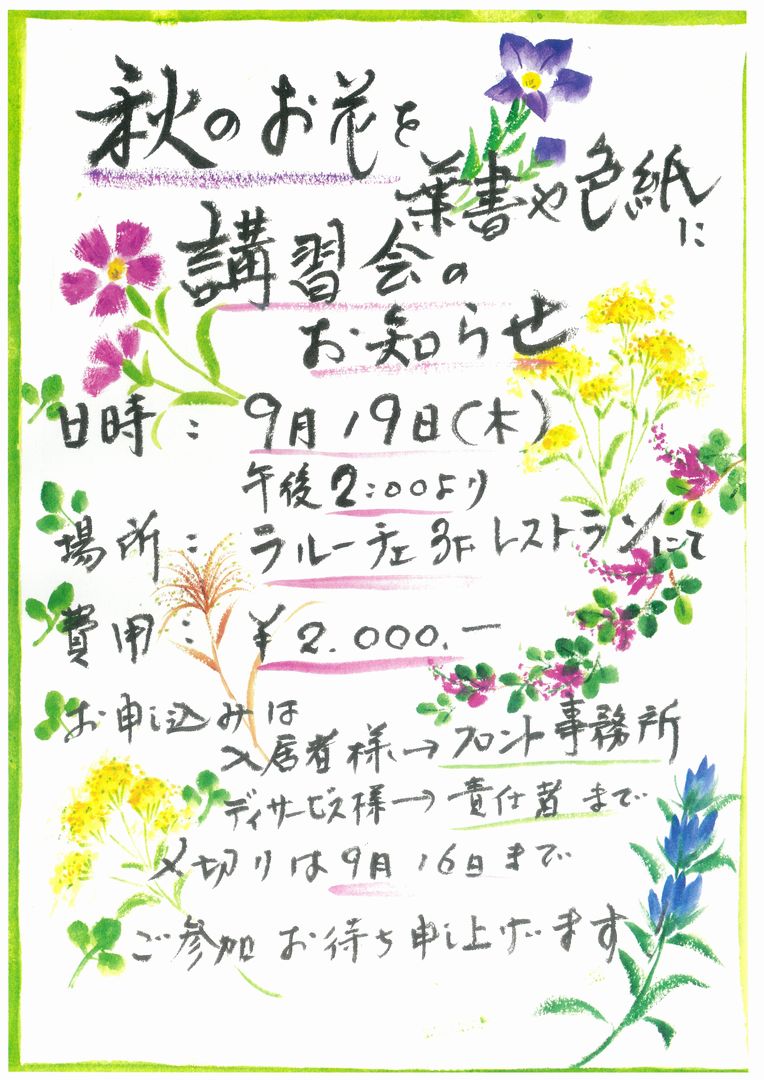 秋のお花を
葉書や色紙に
講習会の
お知らせ
日時：9月19日(木)
午後2:00より
場所：ラルーチェ3Fレストランにて
費用：¥2.000.—
お申し込みは
入居者様→フロント事務所
デイサービス様→責任者まで
〆切りは9月16日まで
ご参加お待ち申し上げます